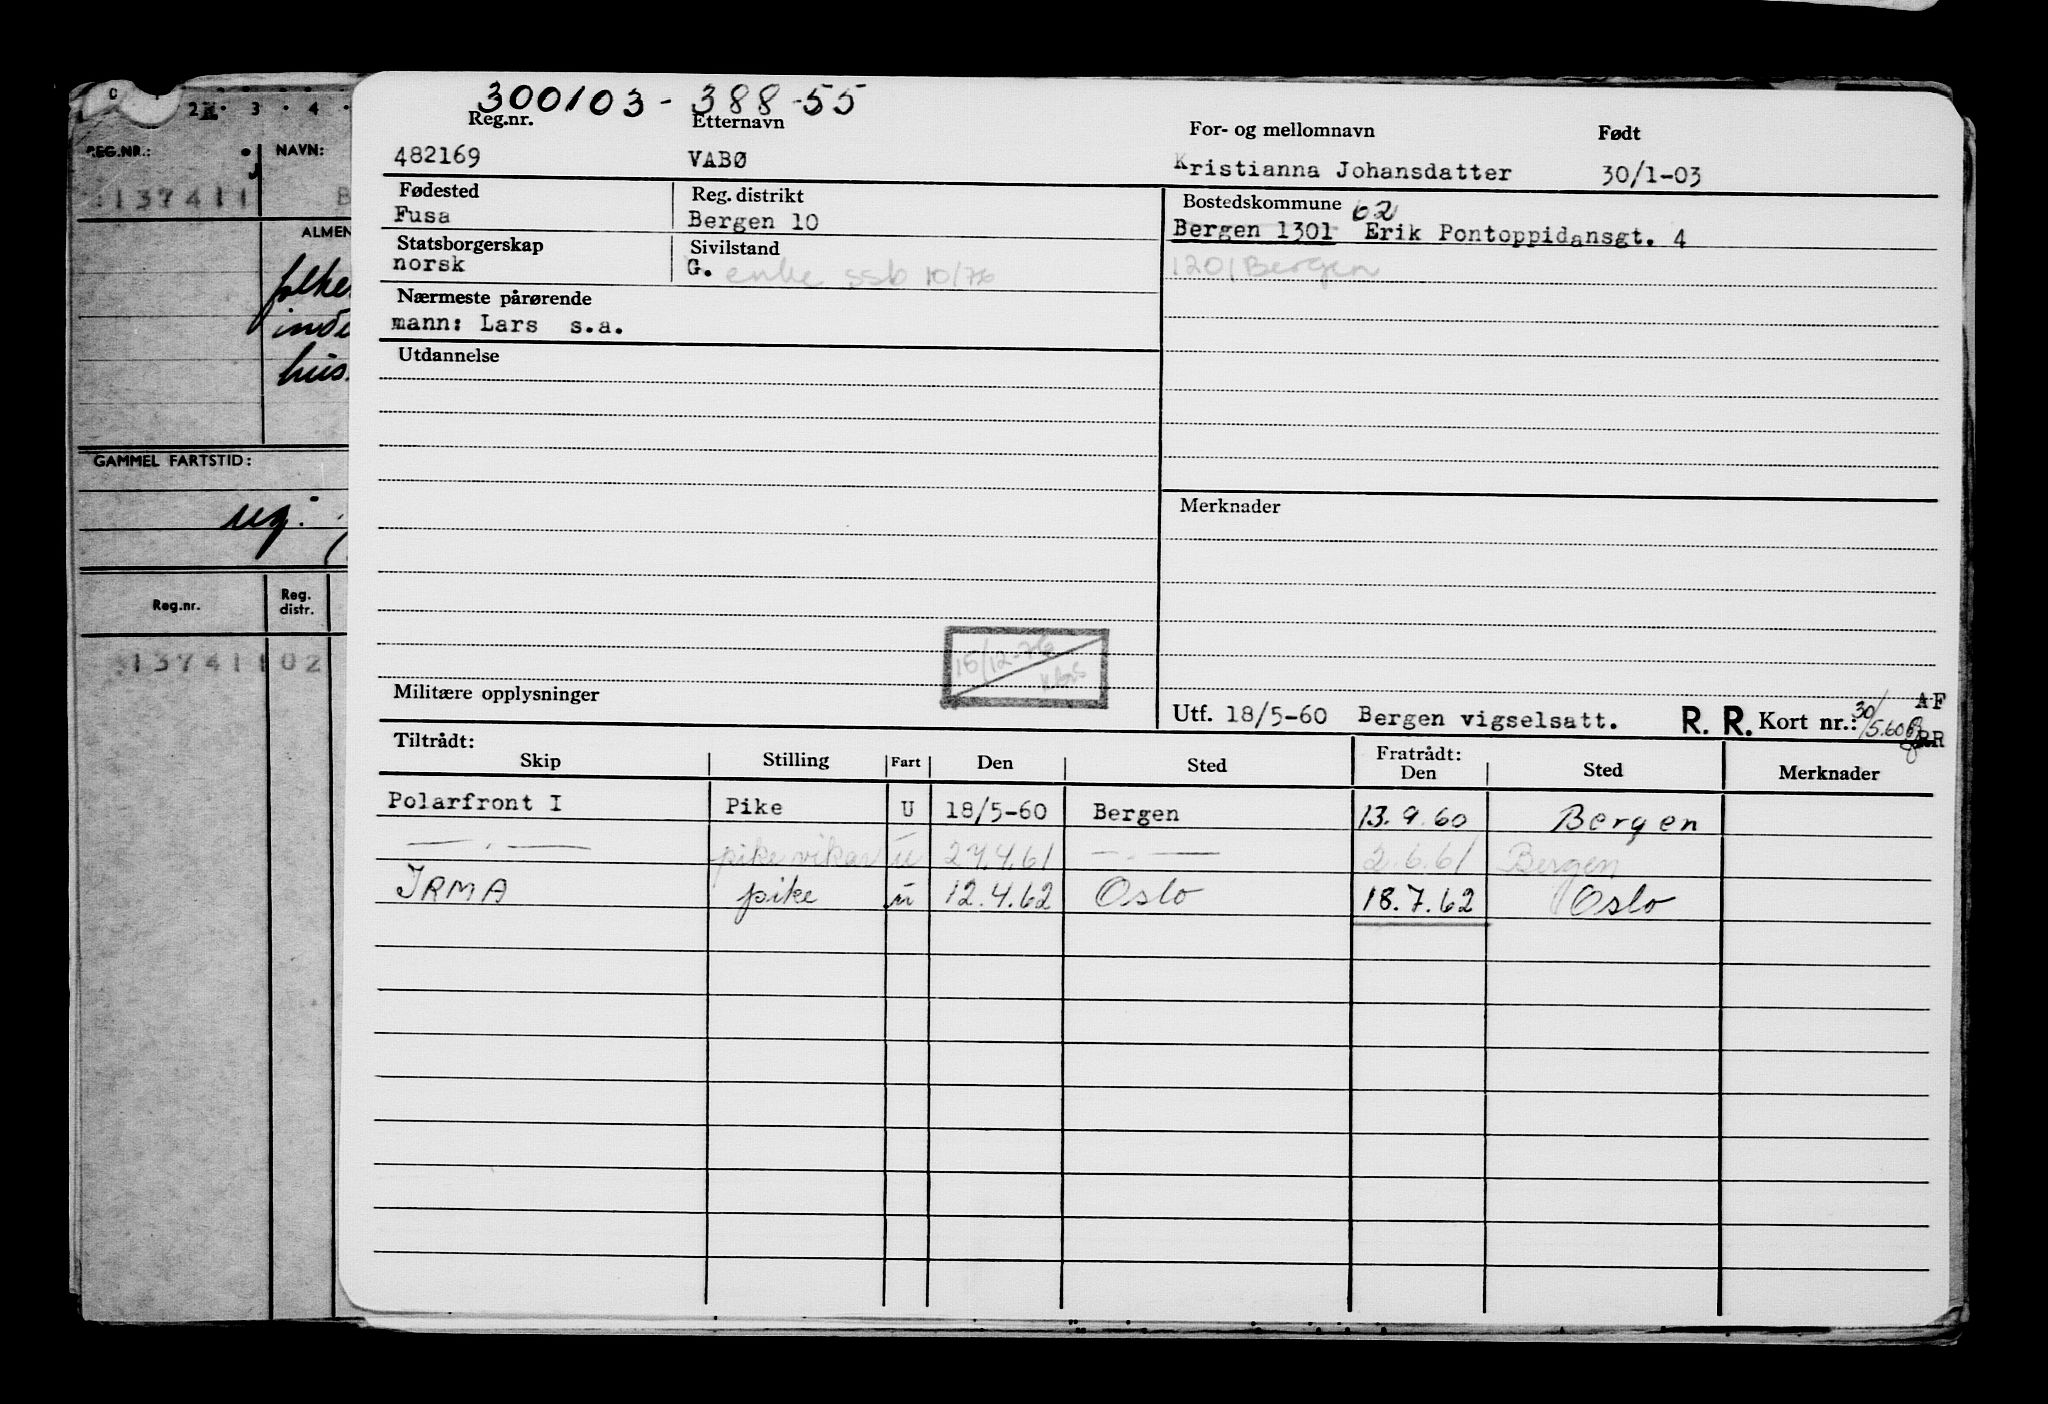 300103 - 388-55
Reg.nr. Etternavn For- og mellomnavn Født
482169 VABØ Kristianna Johansdatter 30/1-03
Fødested Reg. distrikt Bostedskommune 62
Fusa Bergen 10 Bergen 1301 Erik Pontoppidansgt. 4
Statsborgerskap Sivilstand 1201 Bergen
norsk G. enke ssb 10/76
Nærmeste pårørende
mann: Lars s.a.
Utdannelse
Merknader
15/12-76
Militære opplysninger
Utf. 18/5-60 Bergen vigselsatt. R. R. Kort nr.: 30/5.60 AF
RR
Tiltrådt: Fratrådt:
Skip Stilling Fart Den Sted Den Sted Merknader
Polarfront I Pike U 18/5-60 Bergen 13.9.60 Bergen
— . — pike vikar u 27.4.61 — . — 2.6.61 Bergen
IRMA pike u 12.4.62 Oslo 18.7.62 Oslo
2 3 4
REG.NR.: NAVN:
137411 B
ALMEN
folke
inde
hus.
GAMMEL FARTSTID:
uq.
Reg.nr. Reg. distr.
137411 02